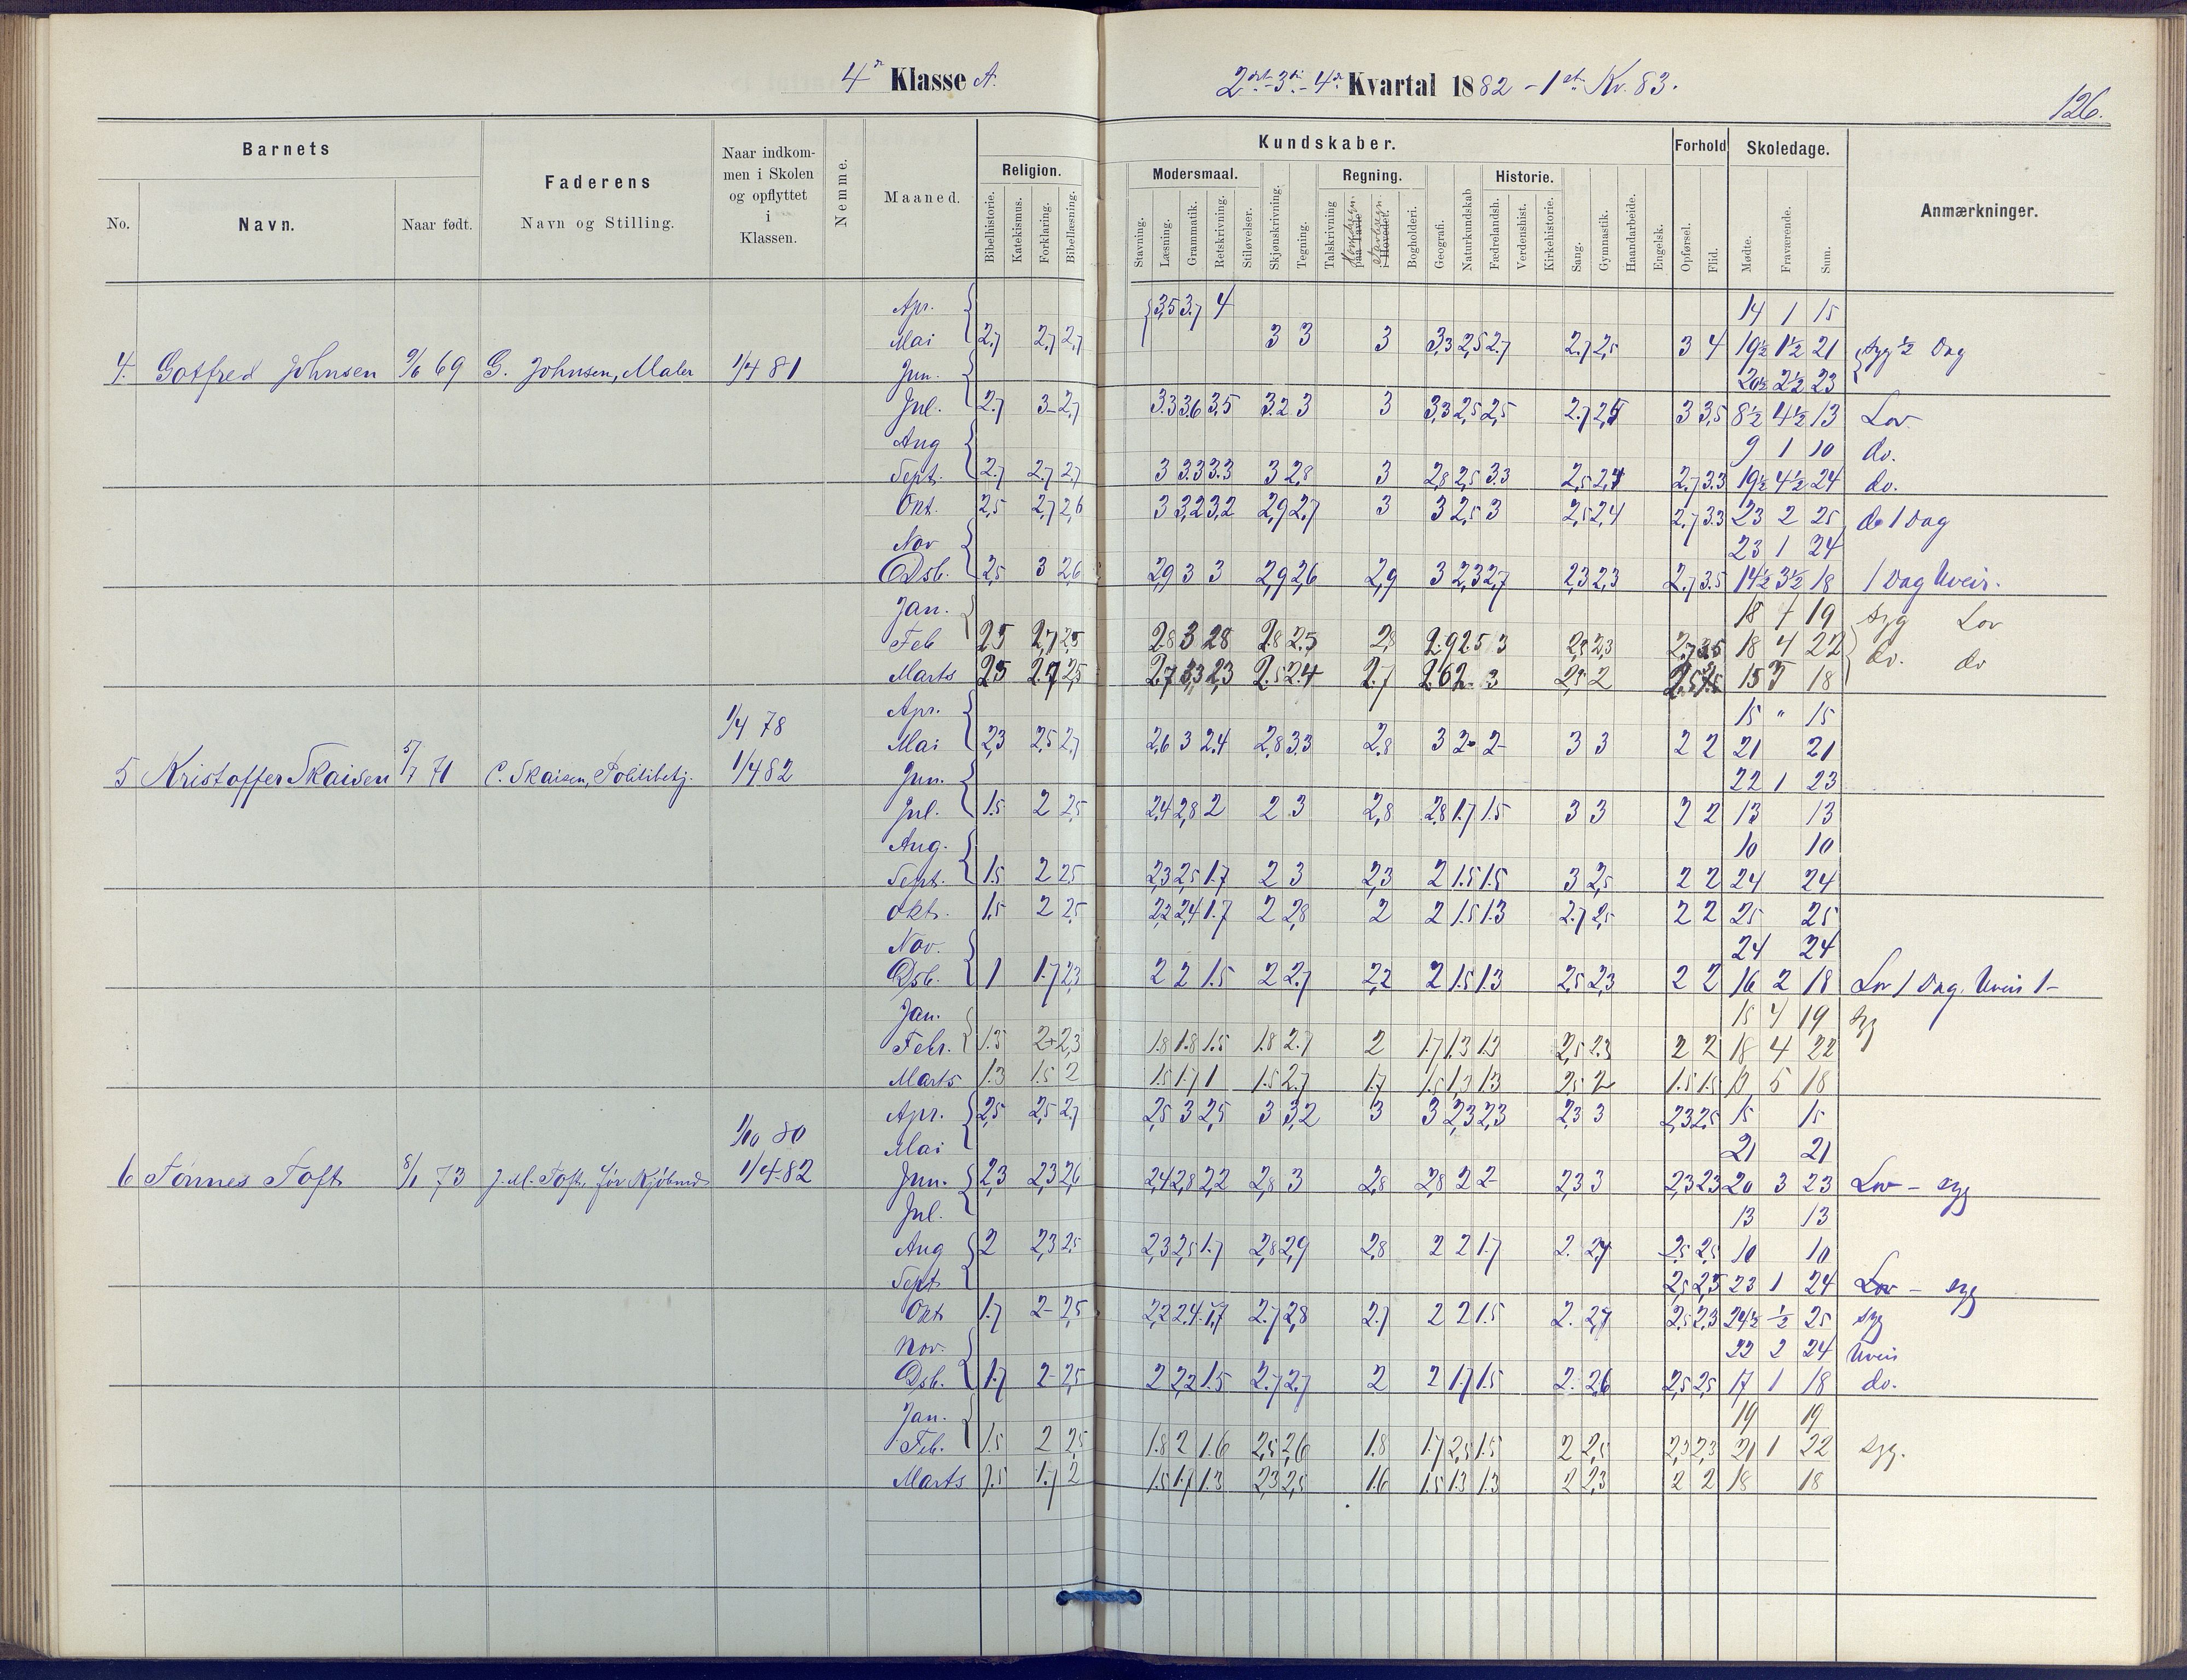 4de Klasse A.
2det - 3die - 4de Kvartal 1882 - 1ste Kv. 83.
126.
Barnets
Faderens
Naar indkommen i Skolen og opflyttet i Klassen.
Nemme.
Maaned.
Religion.
Kundskaber.
Modersmaal.
Regning.
Historie.
Forhold
Skoledage.
Anmærkninger.
No.
Navn.
Naar født.
Navn og Stilling.
Bibelhistorie.
Katekismus.
Forklaring.
Bibellæsning.
Stavning.
Læsning.
Grammatik.
Retskrivning.
Stiløvelser.
Skjønskrivning.
Tegning.
Talskrivning
paa Tavle
i Hovedet.
Bogholderi.
Geografi.
Naturkundskab
Fædrelandsh.
Verdenshist.
Kirkehistorie.
Sang.
Gymnastik.
Haandarbeide.
Engelsk.
Opførsel.
Flid.
Mødte.
Fraværende.
Sum.
Apr. 3,5 3,7 4 14 1 15
Mai 2,7 2,7 2,7 3 3 3 3,3 2,5 2,7 2,7 2,5 3 4 19½ 1½ 21 syg ½ Dag
4. Gotfred Johnsen 9/6 69 G. Johnsen, Maler 1/4 81 Jun. 20½ 2½ 23
Jul. 2,7 3- 2,7 3,3 3,6 3,5 3,2 3 3 3,3 2,5 2,5 2,7 2,5 3 3,5 8½ 4½ 13 Lov.
Aug 9 1 10 do.
Sept. 2,7 2,7 2,7 3 3,3 3,3 3 2,8 3 2,8 2,5 3,3 2,5 2,4 2,7 3,3 19½ 4½ 24 do.
Okt. 2,5 2,7 2,6 3 3,2 3,2 2,9 2,7 3 3 2,5 3 2,5 2,4 2,7 3,3 23 2 25 do 1 Dag
Nov 23 1 24
Dsb. 2,5 3 2,6 2,9 3 3 2,9 2,6 2,9 3 2,3 2,7 2,3 2,3 2,7 3,5 14½ 3½ 18 1 Dag Uveir.
Jan. 18 1 19 syg Lov
Feb 2,5 2,7 2,5 2,8 3 2,8 2,8 2,5 2,8 2,9 2,5 3 2,3 2,7 3,5 18 4 22 do. do
Marts 2,5 2,7 2,5 2,7 3,3 2,3 2,5 2,4 2,7 2,6 2 3 2 2,5 15 3 18
Apr. 15 " 15
1/4 78
Mai 2,3 2,5 2,7 2,6 3 2,4 2,8 3,3 2,8 3 2 2- 3 3 2 2 21 21
5 Kristoffer Skaisen 5/7 71 C. Skaisen, Politibetj. 1/4 82 Jun. 22 1 23
Jul. 1,5 2 2,5 2,4 2,8 2 2 3 2,8 2,8 1,7 1,5 3 3 2 2 13 13
Aug. 10 10
Sept. 1,5 2 2,5 2,3 2,5 1,7 2 3 2,3 2 1,5 1,5 3 2,5 2 2 24 24
Okt. 1,5 2 2,5 2,2 2,4 1,7 2 2,8 2 2 1,5 1,3 2,7 2,5 2 2 25 25
Nov. 24 24
Dsb. 1 1,7 2,3 2 2 1,5 2 2,7 2,2 2 1,5 1,3 2,5 2,3 2 2 16 2 18 Lov 1 Dag. Uveir 1-
Jan. 15 4 19 syg
Febr. 1,3 2+ 2,3 1,8 1,8 1,5 1,8 2,7 2 1,7 1,3 1,3 2,5 2,3 2 2 18 4 22
Marts 1,3 1,5 2 1,5 1,7 1 1,5 2,7 1,7 1,5 1,3 1,3 2,5 2 1,5 1,5 13 5 18
Apr. 2,5 2,5 2,7 2,5 3 2,5 3 3,2 3 3 2,3 2,3 2,3 3 2,3 2,5 15 15
1/10 80
Mai 21 21
6 Tønnes Toft 8/1 73 J. M. Toft, før Kjøbmd 1/4-82 Jun. 2,3 2,3 2,6 2,4 2,8 2,2 2,8 3 2,8 2,8 2 2- 2,3 3 2,3 2,3 20 3 23 Lov - syg
Jul. 13 13
Aug 2 2,3 2,5 2,3 2,5 1,7 2,8 2,9 2,8 2 2 1,7 2. 2,7 2,5 2,5 10 10
Sept 2,5 2,3 23 1 24 Lov - syg
Okt 1,7 2- 2,5 2,2 2,4 1,7 2,7 2,8 2,7 2 2 1,5 2. 2,7 2,5 2,3 24½ ½ 25 syg
Nov. 22 2 24 Uveir
Dsb. 1,7 2- 2,5 2 2,2 1,5 2,7 2,7 2 2 1,7 1,5 2. 2,6 2,5 2,5 17 1 18 do.
Jan. 19 19
Feb. 1,5 2 2,5 1,8 2 1,6 2,5 2,6 1,8 1,7 2,5 1,5 2 2,5 2,3 2,3 21 1 22 syg.
Marts 1,5 1,7 2 1,5 1,7 1,3 2,3 2,5 1,6 1,5 1,3 1,3 2 2,3 2 2 18 18